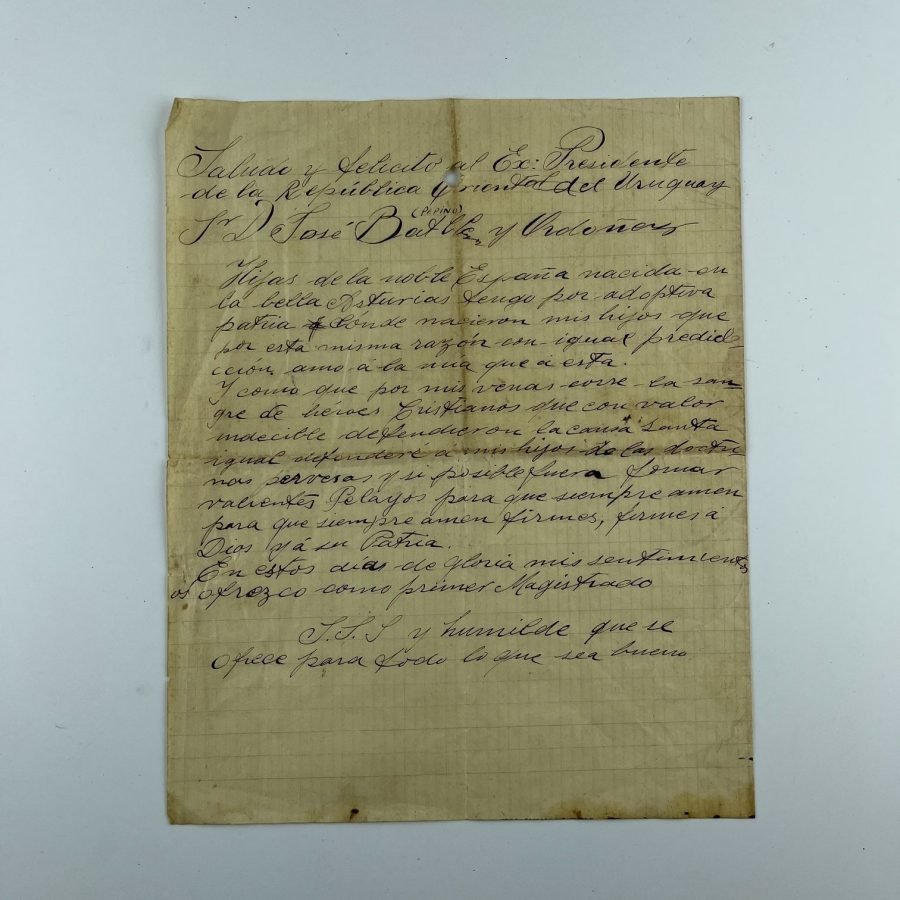 Saludo y felicito al Ex: Presidente
de la República Oriental del Uruguay
(PEPINO)
Sr D José Batlle y Ordoñez
Hijas de la noble España nacida en
la bella Asturias tengo por adoptiva
patria dónde nacieron mis hijos que
por esta misma razón con igual predile
cción amo á la mia que á esta.
Y como que por mis venas corre la san
gre de héroes Cristianos que con valor
indecible defendieron la causa santa
igual defenderé á mis hijos de las doctri
nas y si posible fuera formar
valientes Pelayos para que siempre amen
para que siempre amen firmes, firmes á
Dios y á su Patria.
En estos días de gloria mis sentimientos
os ofrezco como primer Magistrado
S.S.S y humilde que se
ofrece para todo lo que sea bueno